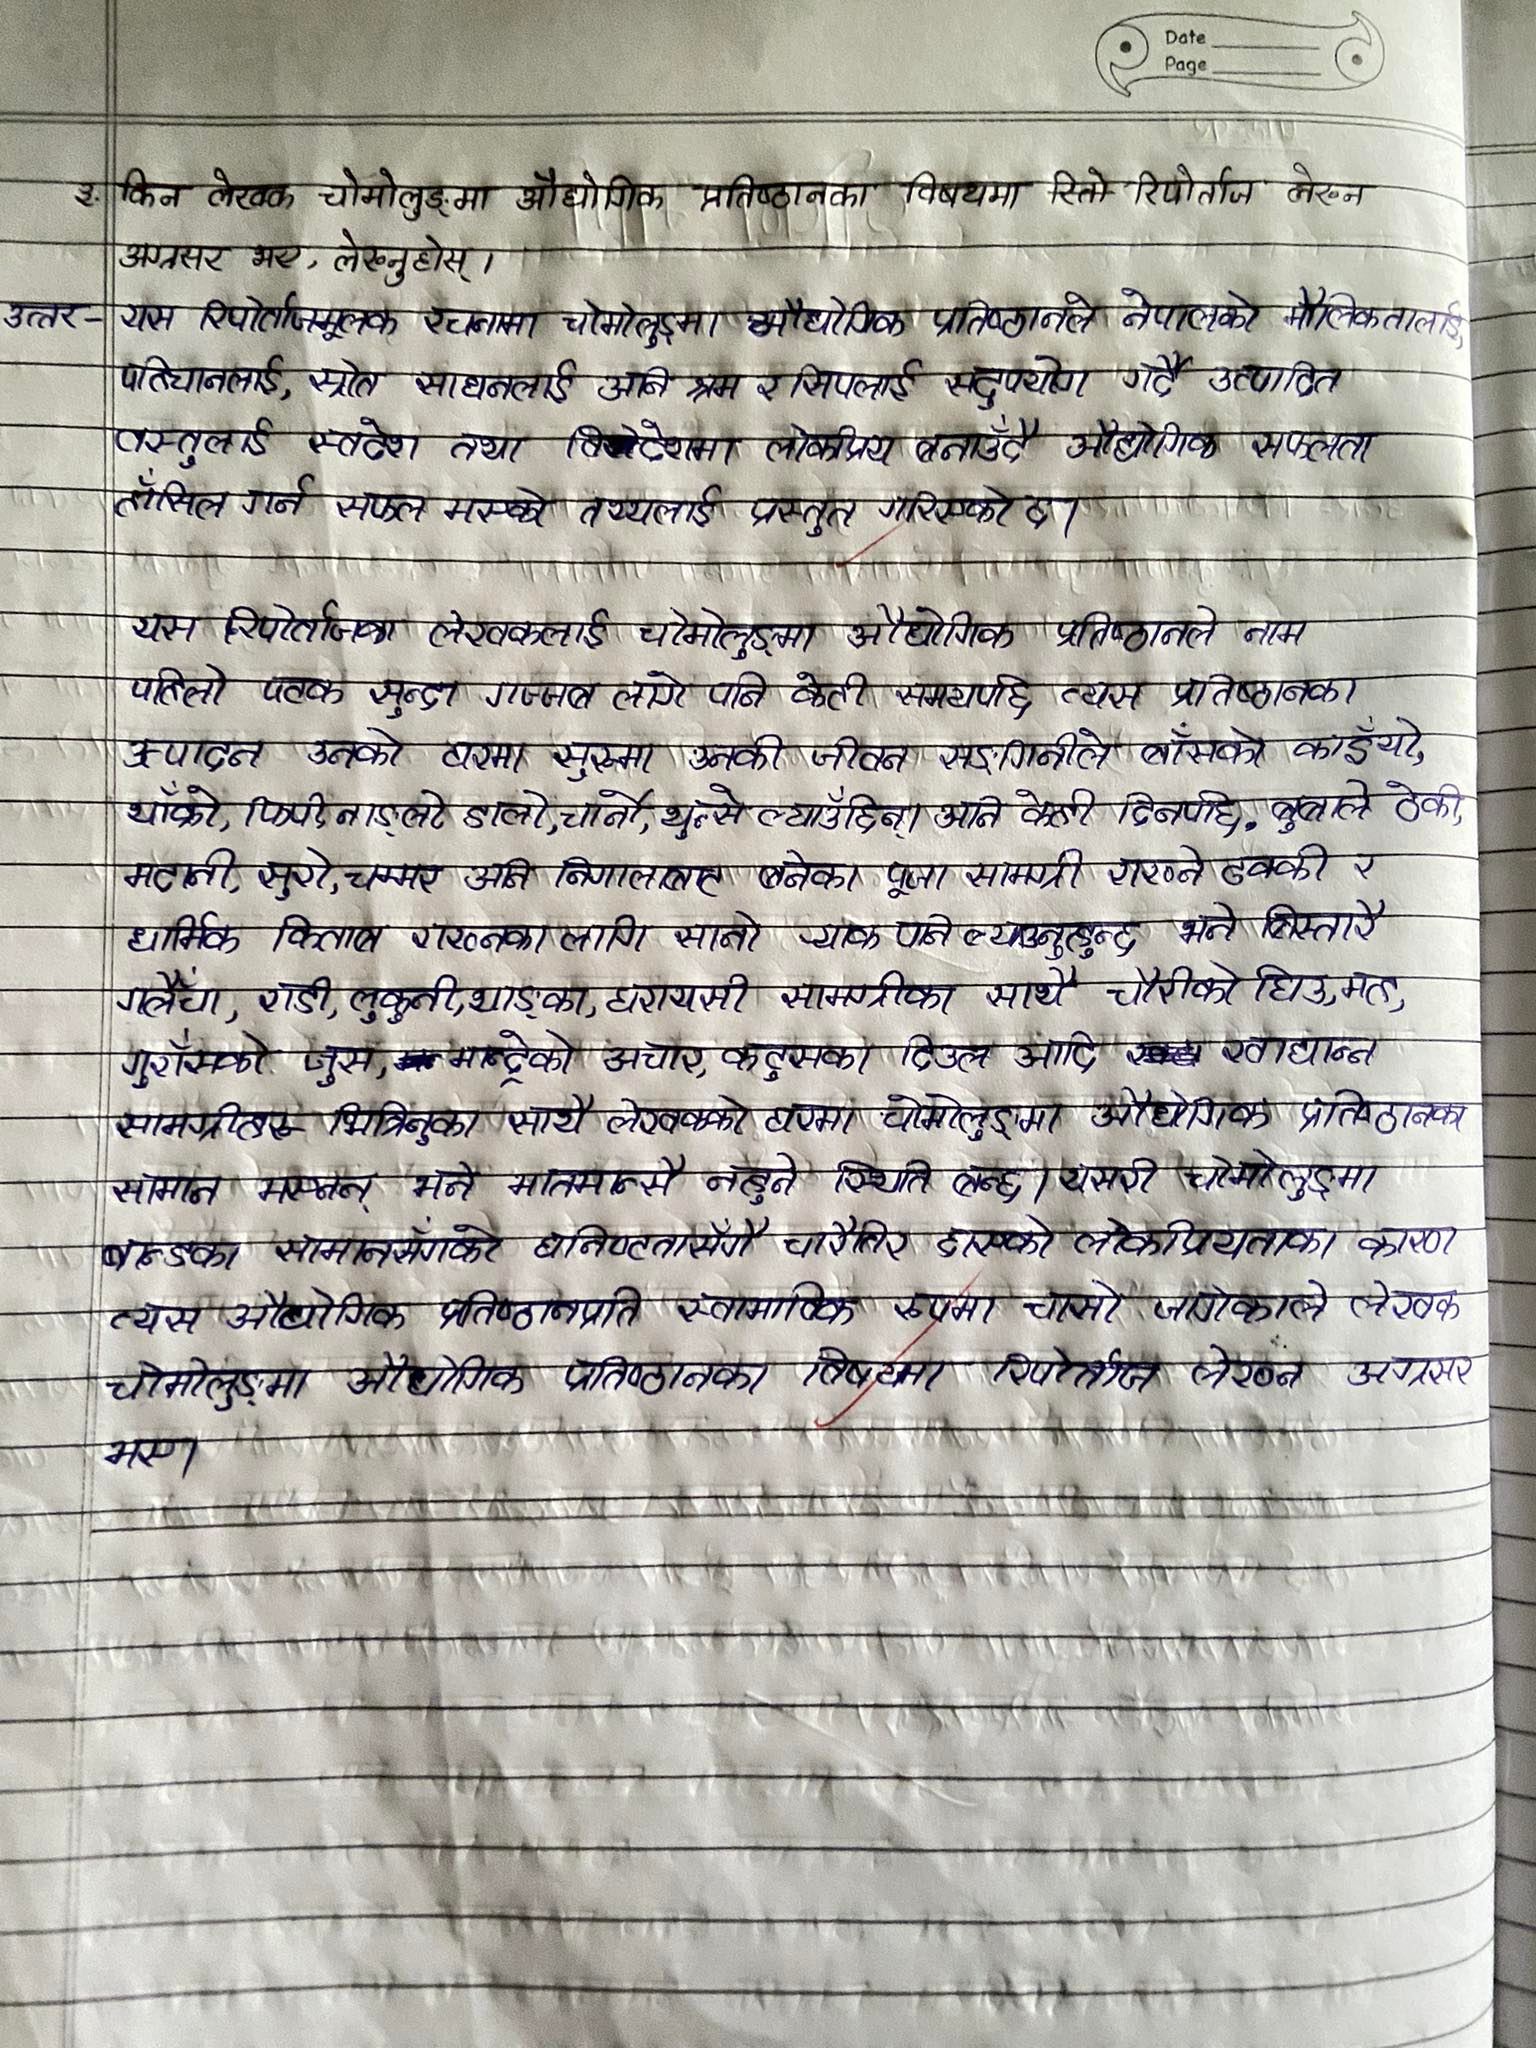 Date
Page
३. किन लेखक चोमोलुङ्मा औद्योगिक प्रतिष्ठानका विषयमा रितो रिपोर्ताज लेख्न
अग्रसर भए, लेख्नुहोस् ।
उत्तर - यस रिपोर्ताजमूलक रचनामा चोमोलुङ्मा औद्योगिक प्रतिष्ठानले नेपालको मौलिकतालाई,
पहिचानलाई, स्रोत साधनलाई अनि श्रम र सिपलाई सदुपयोग गर्दै उत्पादित
वस्तुलाई स्वदेश तथा विदेशमा लोकप्रिय बनाउँदै औद्योगिक सफलता
हाँसिल गर्न सफल भएको तथ्यलाई प्रस्तुत गरिएको छ ।
यस रिपोर्ताजका लेखकलाई चोमोलुङ्मा औद्योगिक प्रतिष्ठानले नाम
पहिलो पटक सुन्दा गज्जब लागे पनि केही समयपछि त्यस प्रतिष्ठानका
उत्पादन उनको घरमा सुरुमा उनकी जीवन सङ्गिनीले बाँसको काइँयो,
थाँक्रो, फिपी, नाङ्लो डालो, चाल्नो, थुन्से ल्याउँछिन् । अनि केही दिनपछि, बुबाले ठेकी,
मदानी, सुरो, चम्मर अनि निगालाबाट बनेका पूजा सामग्री राख्ने ढक्की र
धार्मिक किताब राख्नका लागि सानो र्‍याक पनि ल्याउनुहुन्छ भने बिस्तारै
गलैँचा, राडी, लुकुनी, थाङ्का, घरायसी सामग्रीका साथै चौरीको घिउ, मह,
गुराँसको जुस, मान्द्रेको अचार, कटुसका छिउल आदि खाद्यान्न
सामग्रीहरू भित्रिनुका साथै लेखकको घरमा चोमोलुङ्मा औद्योगिक प्रतिष्ठानका
सामान भएनन् भने मातमान्सै नहुने स्थिति बन्छ । यसरी चोमोलुङ्मा
बान्डका सामानसँगको घनिष्टतासँगै चारैतिर छाएको लोकप्रियताका कारण
त्यस औद्योगिक प्रतिष्ठानप्रति स्वाभाविक रूपमा चासो जागेकाले लेखक
चोमोलुङ्मा औद्योगिक प्रतिष्ठानका विषयमा रिपोर्ताज लेख्न अग्रसर
भए ।